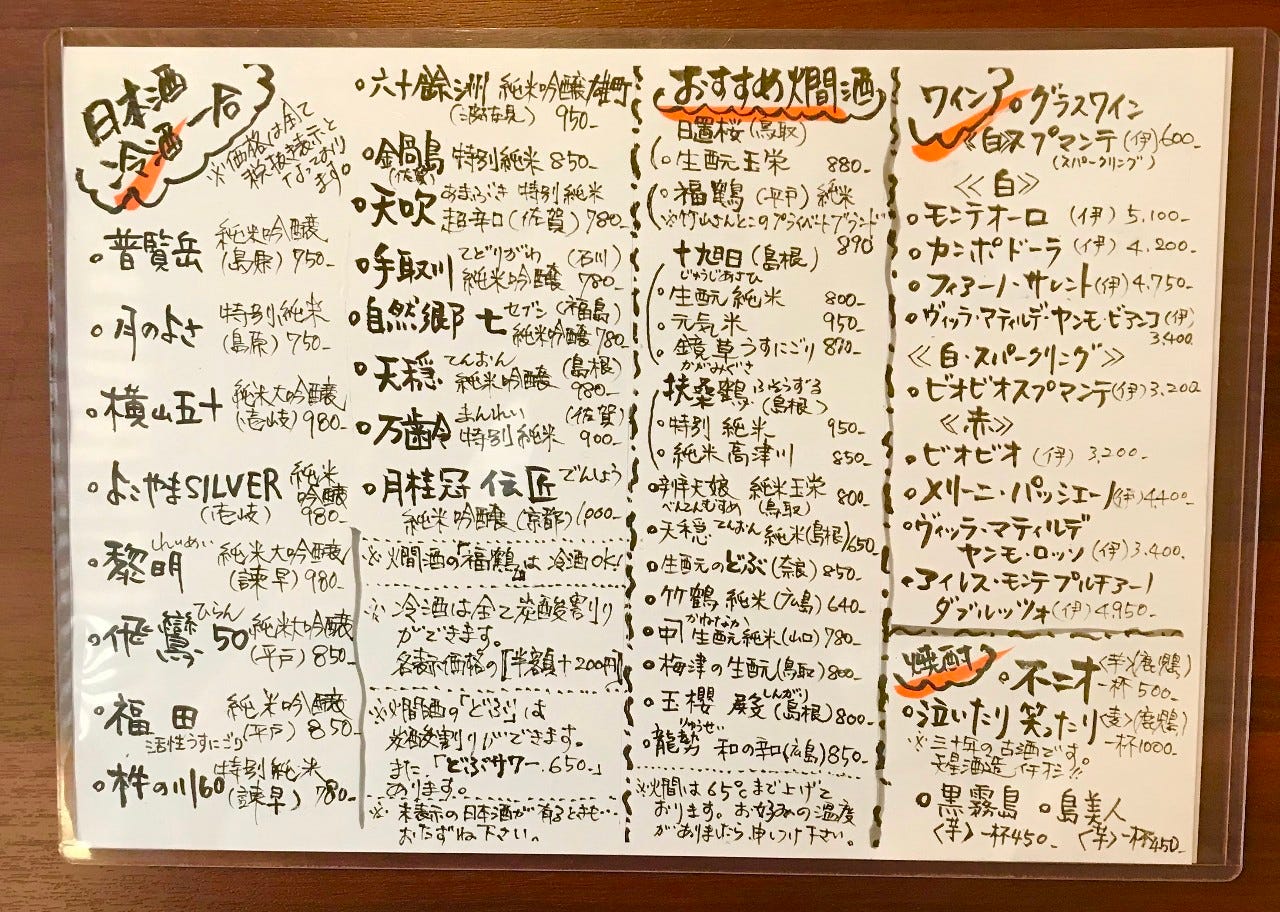 日本酒
冷酒
一合
※価格は全て
税抜き表示と
なっており
ます。
普覧岳 純米吟醸
(島原) 750-
月のよさ 特別純米
(島原) 750-
横山五十 純米大吟醸
(壱岐) 980-
よこやまSILVER 純米
吟醸
(壱岐) 980-
黎明 れいめい 純米大吟醸
(諫早) 980-
飛鸞 ひらん 50 純米大吟醸
(平戸) 850-
福田 純米吟醸
活性うすにごり (平戸) 850-
杵の川60 特別純米
(諫早) 780-
六十餘洲 純米吟醸雄町
(波佐見) 950-
鍋島 特別純米 850-
(佐賀)
天吹 あまぶき 特別純米
超辛口(佐賀) 780-
手取川 てどりがわ (石川)
純米吟醸 780-
自然郷 七 セブン (福島)
純米吟醸 780
天穏 てんおん (島根)
純米吟醸 980-
万齢 まんれい (佐賀)
特別純米 900-
月桂冠 伝匠 でんしょう
純米吟醸(京都) 1,000-
※燗酒の「福鶴」は冷酒OK!
※冷酒は全て炭酸割り
ができます。
各表示価格の[半額+200円]
※燗酒の「どぶ」は
炭酸割りができます。
また「どぶサワー.650-」
あります。
※未表示の日本酒が有るときも…
おたずね下さい。
おすすめ燗酒
日置桜(鳥取)
生酛玉栄 880-
福鶴(平戸) 純米
※竹山さんとこのプライベートブランド
890
十旭日(島根)
じゅうじあさひ
生酛純米 800-
元気米 950-
鏡草うすにごり 890-
かがみぐさ
扶桑鶴 ふそうずる
(島根)
特別純米 950-
純米高津川 850-
辨天娘 純米玉栄 800-
べんてんむすめ (鳥取)
天穏 てんおん 純米(島根) 650-
生酛のどぶ(奈良) 850-
竹鶴 純米(広島) 640-
かねなか
生酛純米(山口) 780-
梅津の生酛(鳥取) 800-
玉櫻 しんがり(島根) 800-
りゅうせい
龍勢 和の辛口(広島) 850-
※燗は65℃まで上げて
おります。お好みの温度
がありましたら、申しつけ下さい。
ワイン
グラスワイン
《白》スプマンテ(伊) 600-
(スパークリング)
《白》
モンテオーロ (伊) 5,100-
カンポドーラ (伊) 4.200-
フィアーノ・サレント(伊) 4.750-
ヴィッラ・マティルデ・ヤンモ・ビアンコ(伊)
3,400
《白・スパークリング》
ビオビオスプマンテ(伊) 3,200
《赤》
ビオビオ (伊) 3,200-
メリーニ・パッシェーノ(伊) 4,400-
ヴィッラ・マティルデ
ヤンモ・ロッソ (伊) 3.400.
アイレス・モンテプルチアーノ
ダブルッツォ (伊) 4,950-
焼酎
不二才 <芋>(鹿児島)
一杯 500-
泣いたり笑ったり <麦>(鹿児島)
一杯1000-
※三十年の古酒です。
天星酒造 イチオシ!!
黒霧島
<芋> 一杯450-
島美人
<芋> 一杯450-